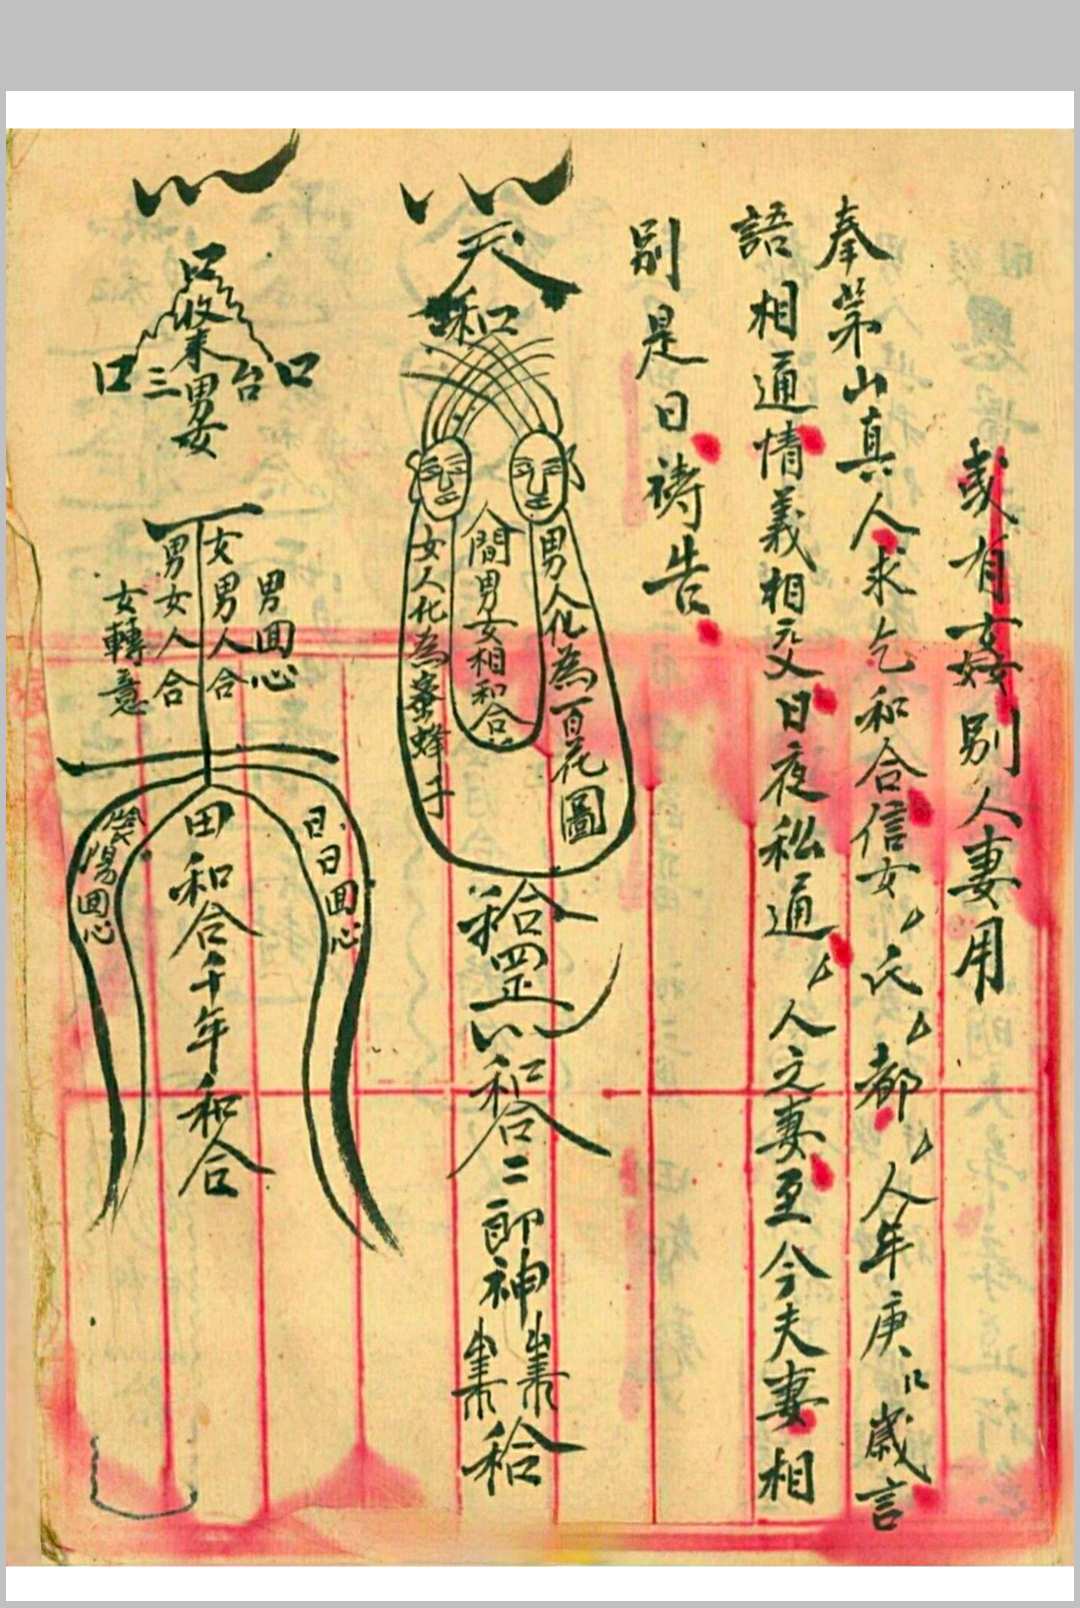 或有女姦別人妻用
奉茅山真人求乞和合信女氏都人年庚歲言
語相通情義相交日夜私通人之妻至今夫妻相
別是日禱告
天
和
男人化為百花圖
人間男女相和合
女人化為蜜蜂子
和合
罡
和合二郎神
和合
口
收來男女
口三台口
男回心
女男人合
男女人合
女轉意
日日回心
田和合千年和合
回心